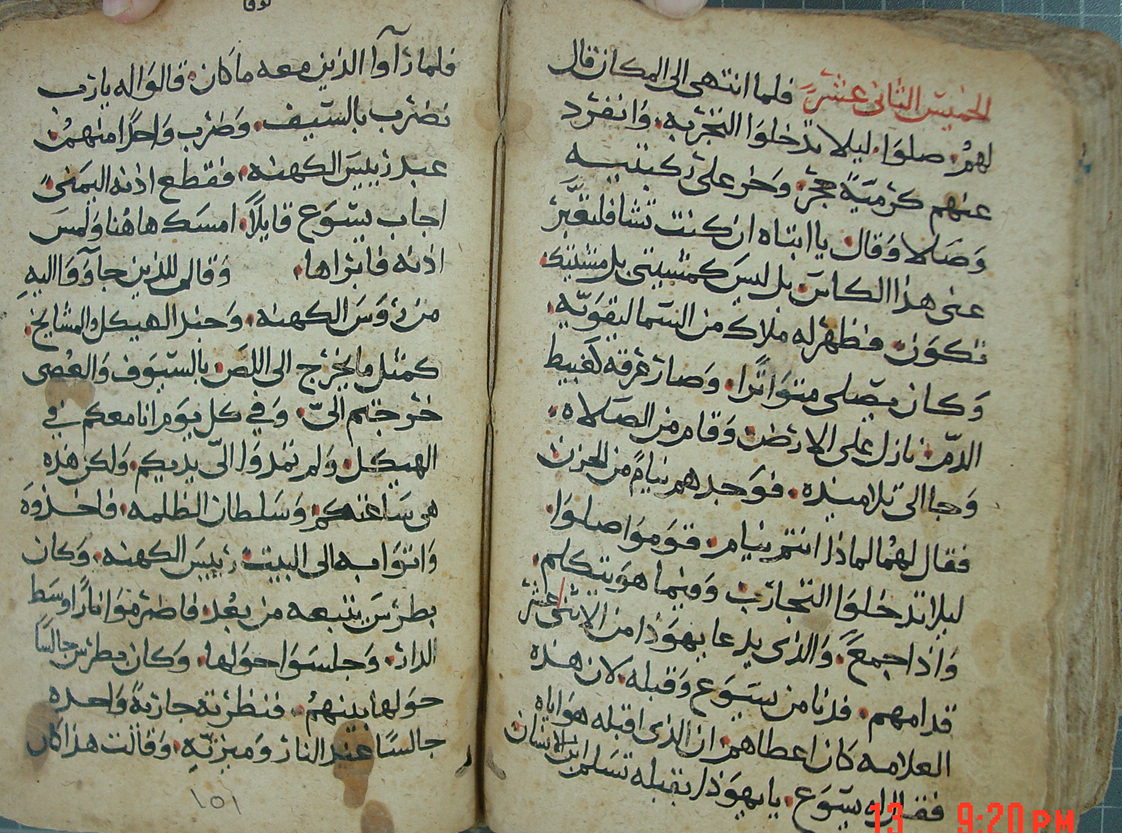 الخميس الثانى عشر فلما انتهى الى المكان قال
لهم. صلوا. ليلا تدخلوا التجربه. وانفرد
عنهم كرمية حجر. وخر على ركبتيه
وصلا وقال. يا ابتاه ان كنت تشا فلتعبر
عنى هذا الكاس. بل ليس كمشيتى بل مشيتك
تكون. فظهر له ملاك من السما ليقويه.
وكان يصلى متواترا. وصار عرقه كعبيط
الدم. نازل على الارض. وقام من الصلاه.
وجا الى تلاميذه. فوجدهم نيام من الحزن
فقال لهم لماذا انتم نيام. قوموا صلوا.
ليلا تدخلوا التجارب. وفيما هو يتكلم.
واذا جمع. والذى يدعا يهوذا من الاثنى عشر
قدامهم. فدنا من يسوع وقبله. لان هذه
العلامه كان اعطاهم. ان الذى اقبله هو اياه
فقال له يسوع. يا يهوذا بقبله تسلم ابن الانسان
فلما راوا الذين معه ما كان. قالوا له يارب
نضرب بالسيف. وضرب واحدا منهم.
عبد رييس الكهنه. فقطع اذنه اليمنى.
اجاب يسوع قايلا. امسك هاهنا ولمس
اذنه فابراها. وقال للذين جاووا اليه
من رووس الكهنه. وجند الهيكل والمشايخ.
كمثل ما يخرج الى اللص. بالسيوف والعصى
خرجتم الى. وفى كل يوم انا معكم في
الهيكل. ولم تمدوا الى يديكم. ولكن هذه
هى ساعتكم. وسلطان الظلمه. فاخذوه
واتوا به الى البيت رييس الكهنه. وكان
بطرس يتبعه من بعد. فاضرموا نارا وسط
الدار. وجلسوا حولها. وكان بطرس جالسا
حولها بينهم. فنظرته جاريه واحده
جالسا عند النار وميزته. وقالت هذا كان
١٥١
13 9:20 PM